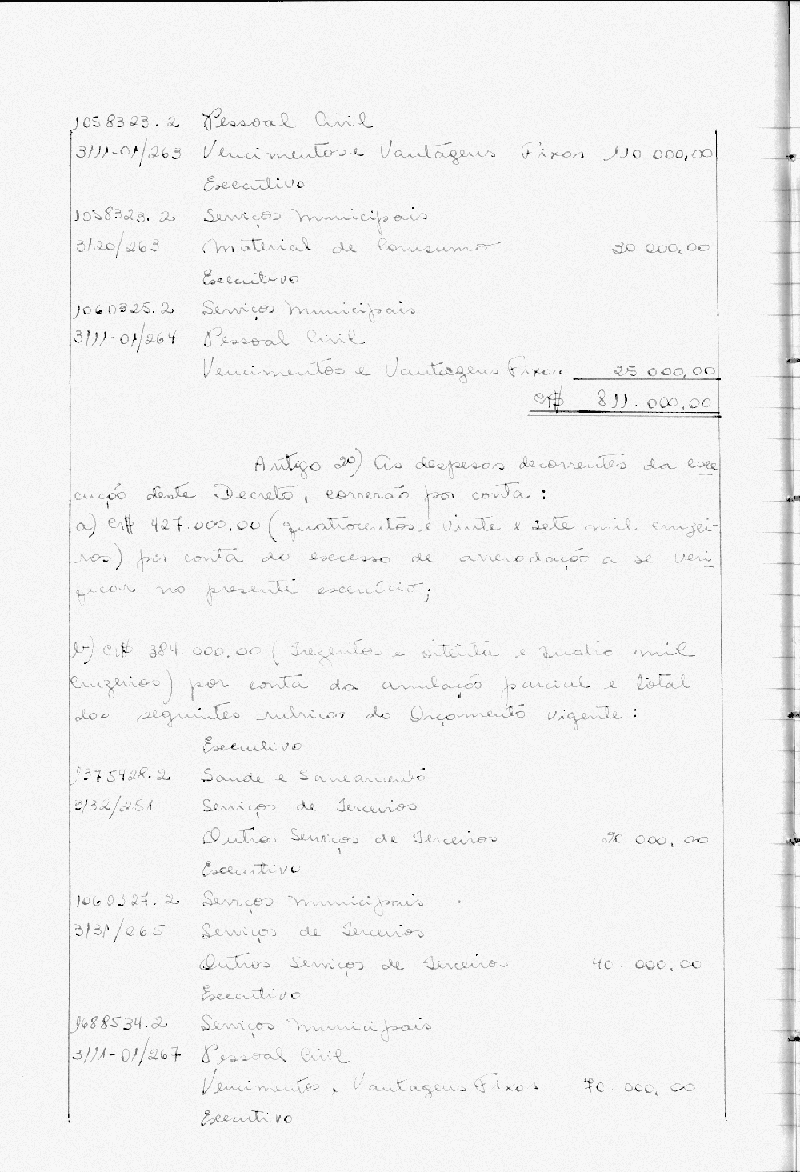 1058323.2 Pessoal Civil
3111-01/263 Vencimentos e Vantágens Fixas 110 000,00
Executivo
1058323.2 Serviços Municipais
3120/263 Material de Consumo 000,00
Executivo
1060325.2 Serviços Municipais
3111-01/264 Pessoal Civil
Vencimentos e Vantagens Fixas 25 000,00
CR$ 811.000,00
Artigo 2º) As despesas decorrentes da exe
cução deste Decreto, correrão por conta:
a) CR$ 427.000,00 (quatrocentos e vinte e sete mil cruzei-
ros) por conta do excesso de arrecadação a se veri
ficar no presente exercício;
b) CR$ 384 000,00 (Trezentos e oitenta e quatro mil
Cruzeiros) por conta da anulação parcial e total
das seguintes rubricas do Orçamento vigente:
Executivo
1375428.2 Saude e Saneamento
3132/251 Serviços de Terceiros
Outros Serviços de Terceiros 000,00
Executivo
1060327.2 Serviços Municipais
3131/265 Serviços de Terceiros
Outros Serviços de Terceiros 40.000,00
Executivo
1688534.2 Serviços Municipais
3111-01/267 Pessoal Civil
Vencimentos e Vantagens Fixas 70.000,00
Executivo